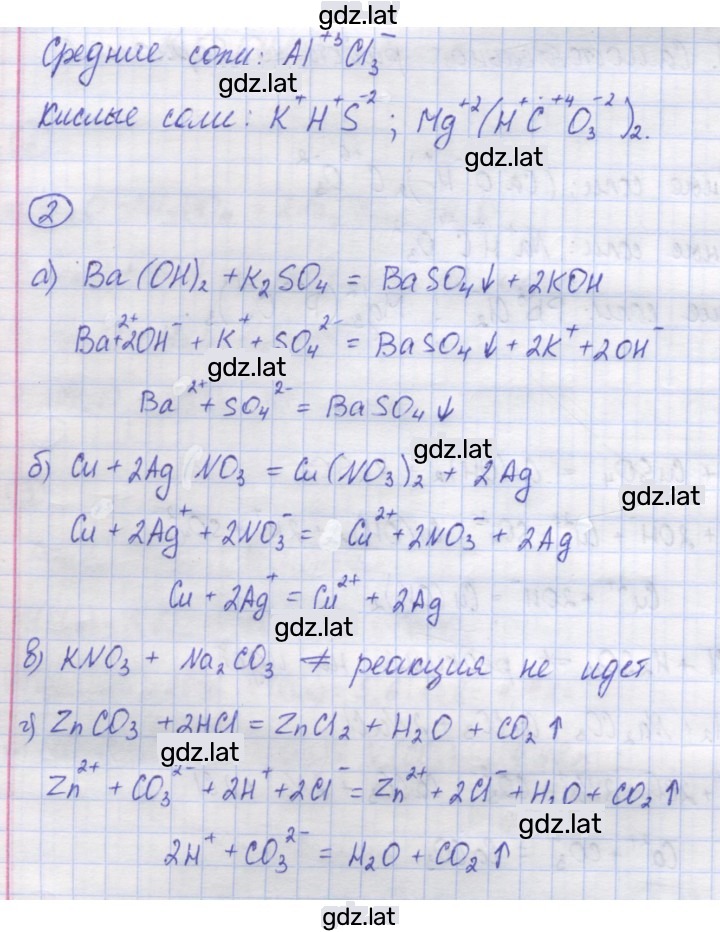 gdz.lat
Средние соли: Al⁺³Cl₃⁻
gdz.lat
Кислые соли: K⁺H⁺S⁻²; Mg⁺²(H⁺C⁺⁴O₃⁻²)₂.
gdz.lat
2
а) Ba(OH)₂ + K₂SO₄ = BaSO₄↓ + 2KOH
Ba²⁺+2OH⁻ + K⁺ + SO₄²⁻ = BaSO₄↓ + 2K⁺ + 2OH⁻
gdz.lat
Ba²⁺ + SO₄²⁻ = BaSO₄↓
gdz.lat
б) Cu + 2AgNO₃ = Cu(NO₃)₂ + 2Ag
gdz.lat
Cu + 2Ag⁺ + 2NO₃⁻ = Cu²⁺ + 2NO₃⁻ + 2Ag
Cu + 2Ag⁺ = Cu²⁺ + 2Ag
gdz.lat
в) KNO₃ + Na₂CO₃ ≠ реакция не идет
г) ZnCO₃ + 2HCl = ZnCl₂ + H₂O + CO₂↑
gdz.lat
Zn²⁺ + CO₃²⁻ + 2H⁺ + 2Cl⁻ = Zn²⁺ + 2Cl⁻ + H₂O + CO₂↑
gdz.lat
2H⁺ + CO₃²⁻ = H₂O + CO₂↑
gdz.lat